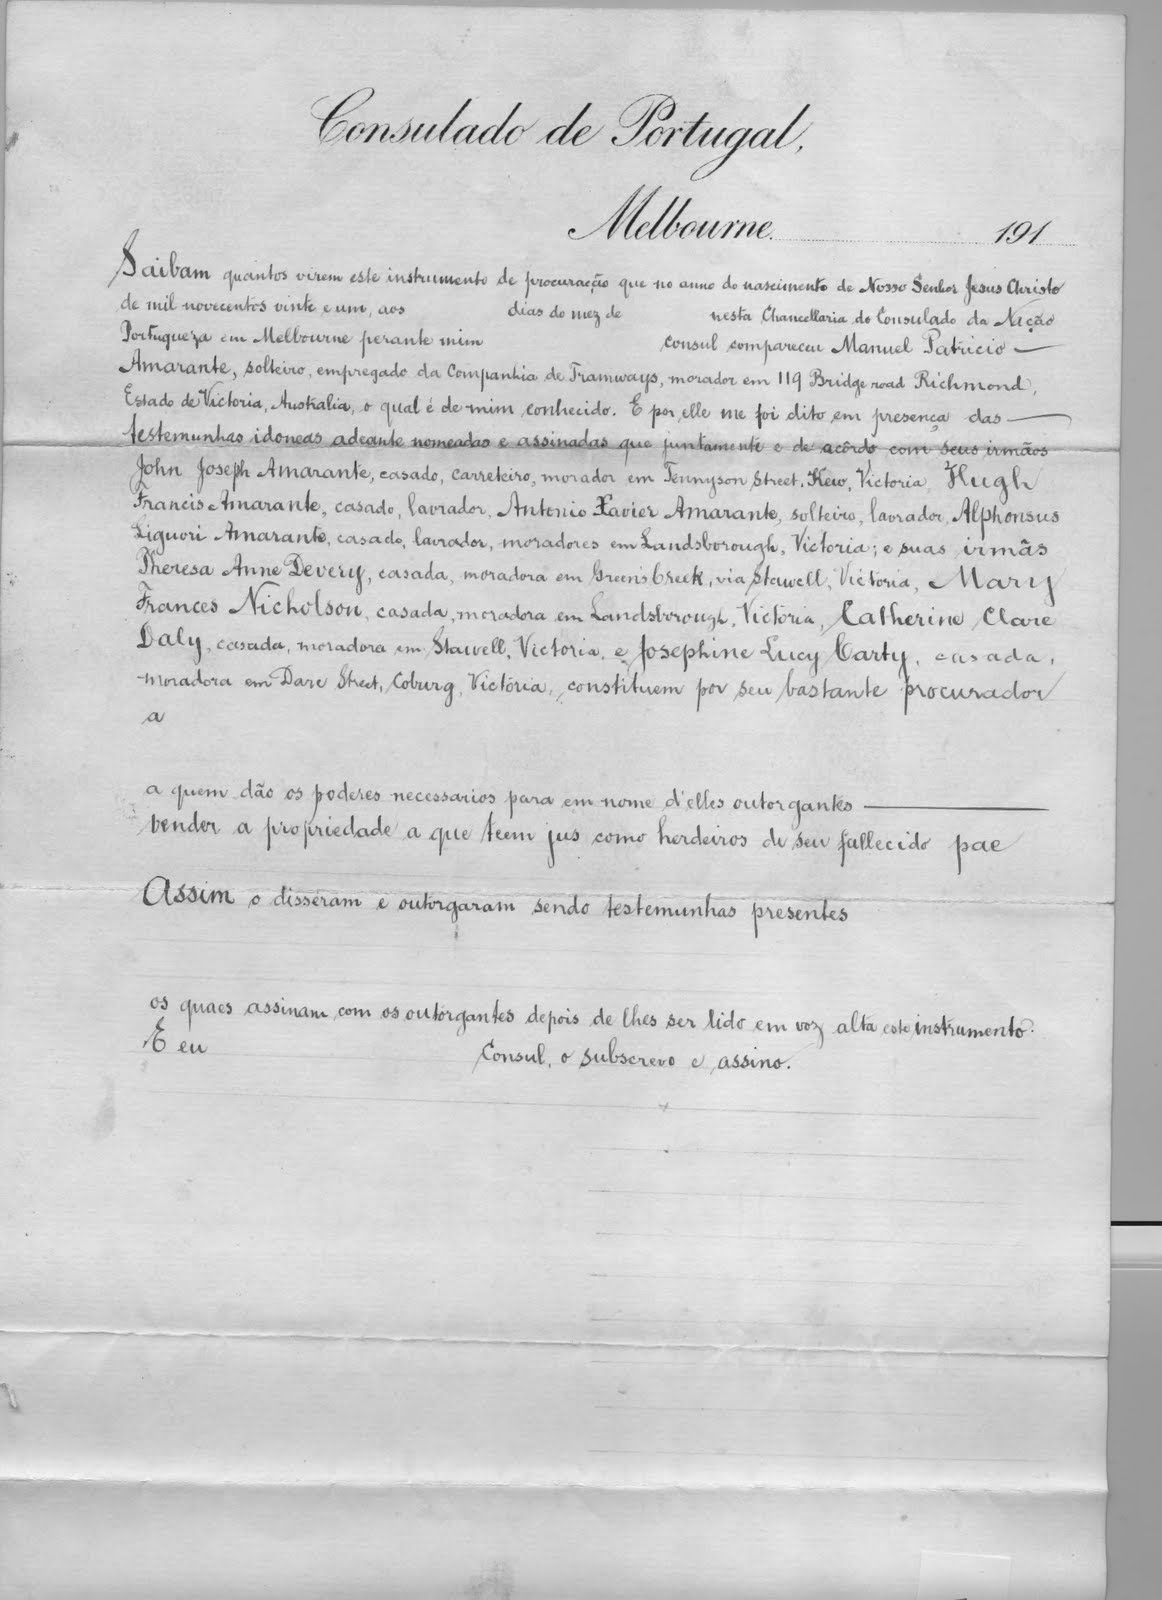 Consulado de Portugal,
Melbourne 191
Saibam quantos virem este instrumento de procuração que no anno do nascimento de Nosso Senhor Jesus Christo
de mil novecentos vinte e um, aos dias do mez de nesta Chancellaria do Consulado da Nação
Portugueza em Melbourne perante mim Consul compareceu Manuel Patricio —
Amarante, solteiro, empregado da Companhia de Tramways, morador em 119 Bridge road Richmond,
Estado de Victoria, Australia, o qual é de mim conhecido. E por elle me foi dito em presença das —
testemunhas idoneas adeante nomeadas e assinadas que juntamente e de acôrdo com seus irmãos
John Joseph Amarante, casado, carreteiro, morador em Tennyson Street, Kew, Victoria, Hugh
Francis Amarante, casado, lavrador, Antonio Xavier Amarante, solteiro, lavrador, Alphonsus
Liguori Amarante, casado, lavrador, moradores em Landsborough, Victoria; e suas irmãs
Theresa Anne Devery, casada, moradora em Greens Creek, via Stawell, Victoria, Mary
Frances Nicholson, casada, moradora em Landsborough, Victoria, Catherine Clare
Daly, casada, moradora em Stawell, Victoria, e Josephine Lucy Carty, casada,
moradora em Dare Street, Coburg, Victoria, constituem por seu bastante procurador
a
a quem dão os poderes necessarios para em nome d'elles outorgantes —
vender a propriedade a que teem jus como herdeiros de seu fallecido pae
Assim o disseram e outorgaram sendo testemunhas presentes
os quaes assinam com os outorgantes depois de lhes ser lido em voz alta este instrumento.
E eu Consul, o subscrevo e assino.